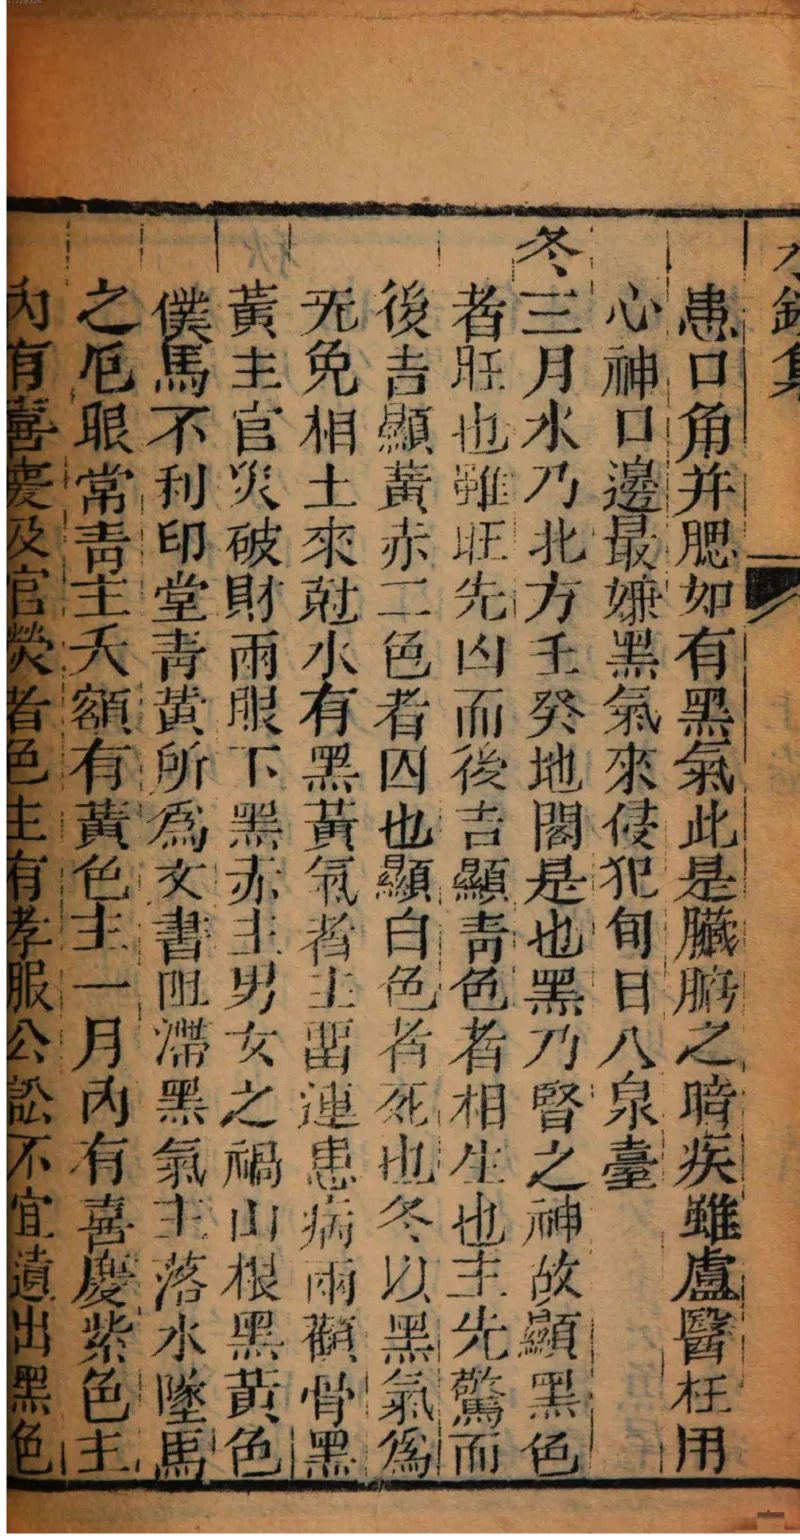 氷鑑集
患口角并腮如有黑氣此是臟腑之暗疾雖盧醫枉用
心神口邊最嫌黑氣來侵犯旬日八泉臺
冬三月水乃北方壬癸地閣是也黑乃腎之神故顯黑色
者旺也雖旺先凶而後吉顯青色者相生也主先驚而
後吉顯黃赤二色者囚也顯白色者死也冬以黑氣爲
无免相土來尅水有黑黃氣者主畱連患病兩顴骨黑
黃主官災破財兩眼下黑赤主男女之禍山根黑黃色
僕馬不利印堂青黃所爲文書阻滯黑氣主落水墜馬
之厄眼常青主夭額有黃色主一月內有喜慶紫色主
內有喜慶及官熒者色主有孝服公訟不宜遠出黑色